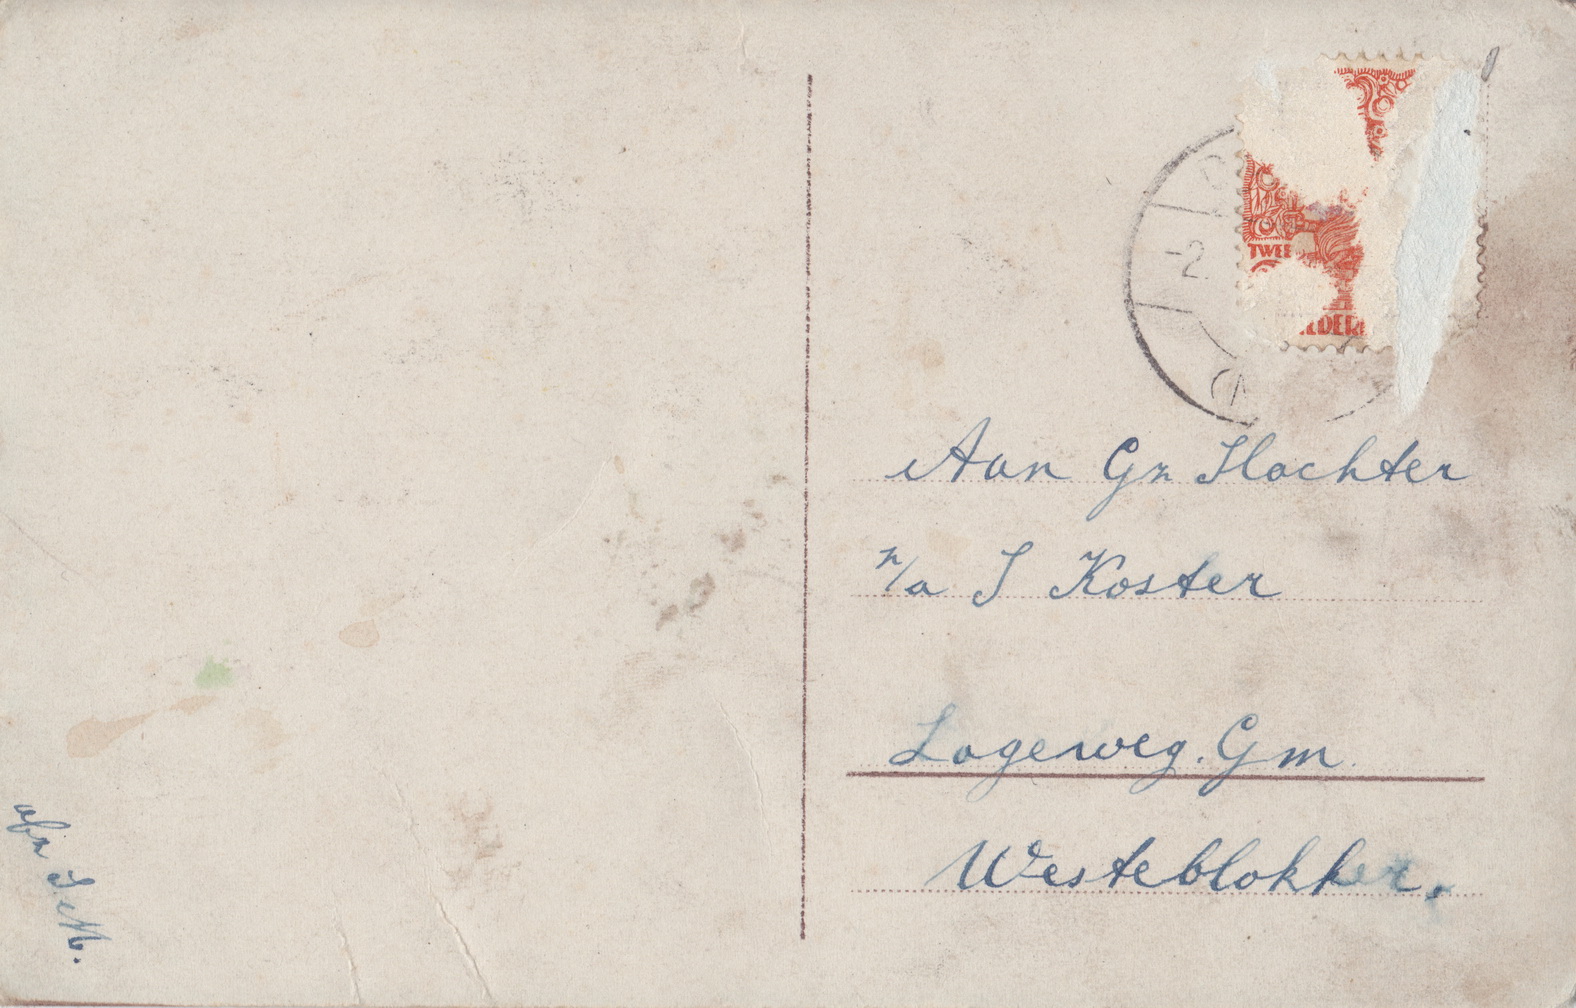 TWEE
LDER
-2.
Aan Gn Slachter
n/a S Koster
Lageweg. Gm
Westeblokker.
afn S M.